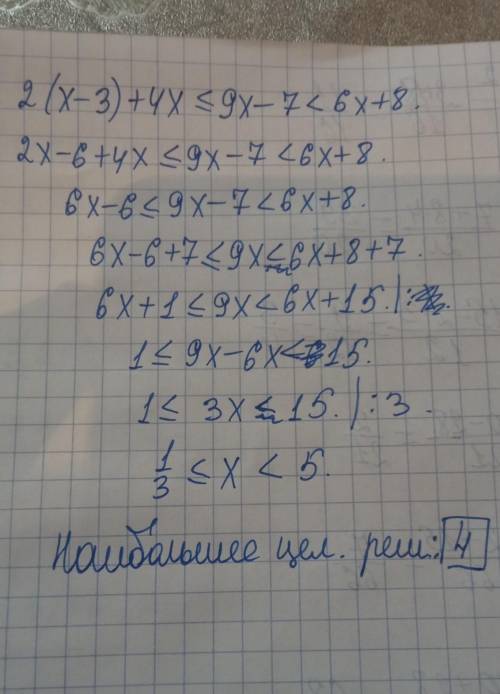 2(x-3)+4x ≤ 9x-7 < 6x+8.
2x-6+4x ≤ 9x-7 < 6x+8.
6x-6 ≤ 9x-7 < 6x+8.
6x-6+7 ≤ 9x ≤ 6x+8+7.
6x+1 ≤ 9x < 6x+15. | :
1 ≤ 9x-6x < 15.
1 ≤ 3x ≤ 15. | :3.
1/3 ≤ x < 5.
Наибольшее цел. реш: 4